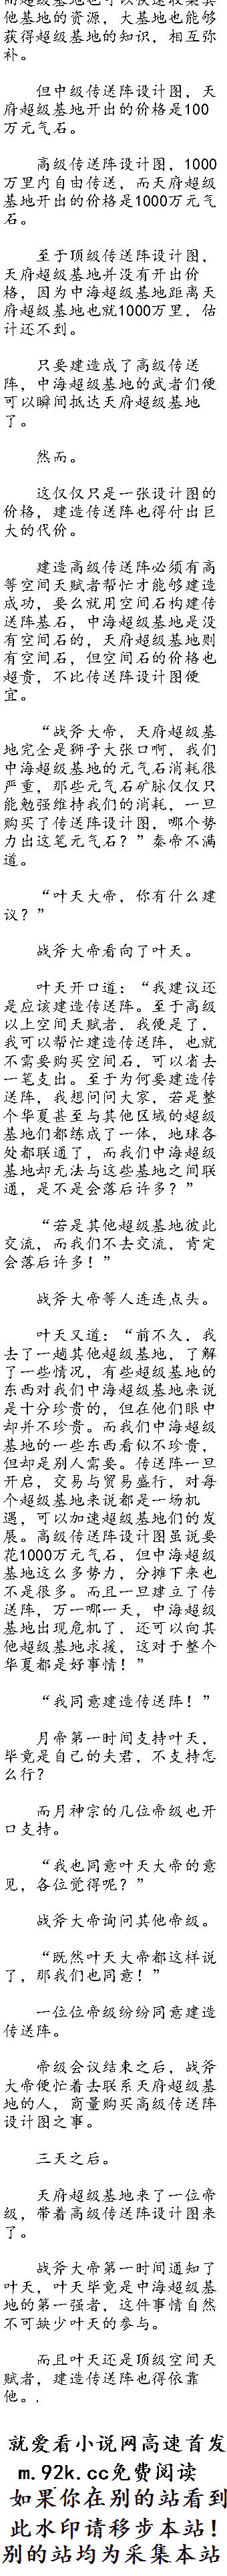 他基地的资源，大基地也能够
获得超级基地的知识，相互弥
补。
但中级传送阵设计图，天
府超级基地开出的价格是100
万元气石。
高级传送阵设计图，1000
万里内自由传送，而天府超级
基地开出的价格是1000万元气
石。
至于顶级传送阵设计图，
天府超级基地并没有开出价
格，因为中海超级基地距离天
府超级基地也就1000万里，估
计还不到。
只要建造成了高级传送
阵，中海超级基地的武者们便
可以瞬间抵达天府超级基地
了。
然而。
这仅仅只是一张设计图的
价格，建造传送阵也得付出巨
大的代价。
建造高级传送阵必须有高
等空间天赋者帮忙才能够建造
成功，要么就用空间石构建传
送阵基石，中海超级基地是没
有空间石的，天府超级基地则
有空间石，但空间石的价格也
超贵，不比传送阵设计图便
宜。
“战斧大帝，天府超级基
地完全是狮子大张口啊，我们
中海超级基地的元气石消耗很
严重，那些元气石矿脉仅仅只
能勉强维持我们的消耗，一旦
购买了传送阵设计图，哪个势
力出这笔元气石？”秦帝不满
道。
“叶天大帝，你有什么建
议？”
战斧大帝看向了叶天。
叶天开口道：“我建议还
是应该建造传送阵。至于高级
以上空间天赋者，我便是了，
我可以帮忙建造传送阵，也就
不需要购买空间石，可以省去
一笔支出。至于为何要建造传
送阵，我想问问大家，若是整
个华夏甚至与其他区域的超级
基地们都练成了一体，地球各
处都联通了，而我们中海超级
基地却无法与这些基地之间联
通，是不是会落后许多？”
“若是其他超级基地彼此
交流，而我们不去交流，肯定
会落后许多！”
战斧大帝等人连连点头。
叶天又道：“前不久，我
去了一趟其他超级基地，了解
了一些情况，有些超级基地的
东西对我们中海超级基地来说
是十分珍贵的，但在他们眼中
却并不珍贵。而我们中海超级
基地的一些东西看似不珍贵，
但却是别人需要。传送阵一旦
开启，交易与贸易盛行，对每
个超级基地来说都是一场机
遇，可以加速超级基地们的发
展。高级传送阵设计图虽说要
花1000万元气石，但中海超级
基地这么多势力，分摊下来也
不是很多。而且一旦建立了传
送阵，万一哪一天，中海超级
基地出现危机了，还可以向其
他超级基地求援，这对于整个
华夏都是好事情！”
“我同意建造传送阵！”
月帝第一时间支持叶天，
毕竟是自己的夫君，不支持怎
么行？
而月神宗的几位帝级也开
口支持。
“我也同意叶天大帝的意
见，各位觉得呢？”
战斧大帝询问其他帝级。
“既然叶天大帝都这样说
了，那我们也同意！”
一位位帝级纷纷同意建造
传送阵。
帝级会议结束之后，战斧
大帝便忙着去联系天府超级基
地的人，商量购买高级传送阵
设计图之事。
三天之后。
天府超级基地来了一位帝
级，带着高级传送阵设计图来
了。
战斧大帝第一时间通知了
叶天，叶天毕竟是中海超级基
地的第一强者，这件事情自然
不可缺少叶天的参与。
而且叶天还是顶级空间天
赋者，建造传送阵也得依靠
他。.
就爱看小说网高速首发
m.92k.cc免费阅读
如果你在别的站看到
此水印请移步本站！
别的站均为采集本站